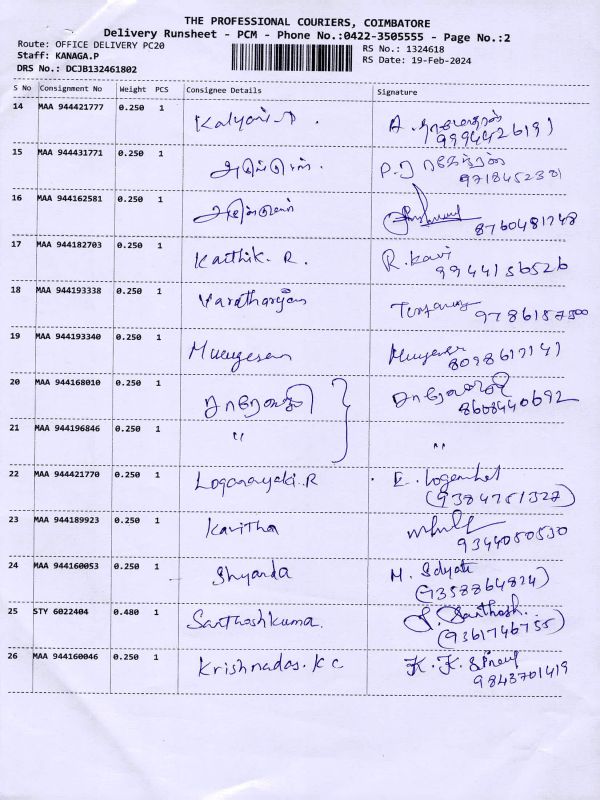 THE PROFESSIONAL COURIERS, COIMBATORE
Delivery Runsheet - PCM - Phone No.:0422-3505555 - Page No.:2
Route: OFFICE DELIVERY PC20
RS No.: 1324618
Staff: KANAGA.P
RS Date: 19-Feb-2024
DRS No.: DCJB132461802
S No Consignment No Weight PCS Consignee Details Signature
14 MAA 944421777 0.250 1 A.
15 MAA 944431771 0.250 1
9718452381
16 MAA 944162581 0.250 1
8760481748
17 MAA 944182703 0.250 1 Kaithik. R. R. Kavi
9944156526
18 MAA 944193338 0.250 1
19 MAA 944193340 0.250 1 Murugesan
8098617141
20 MAA 944168010 0.250 1
8608440692
21 MAA 944196846 0.250 1 " "
22 MAA 944421770 0.250 1 Loganayaki. R E.
(9384751327)
23 MAA 944189923 0.250 1 Kavitha
9344050530
24 MAA 944160053 0.250 1 Shyanda M.
(7358864824)
25 STY 6022404 0.480 1 Santhoshkumar. S. Santhosh.
(9361746755)
26 MAA 944160046 0.250 1 Krishnadas. K C K. K.
9843701419